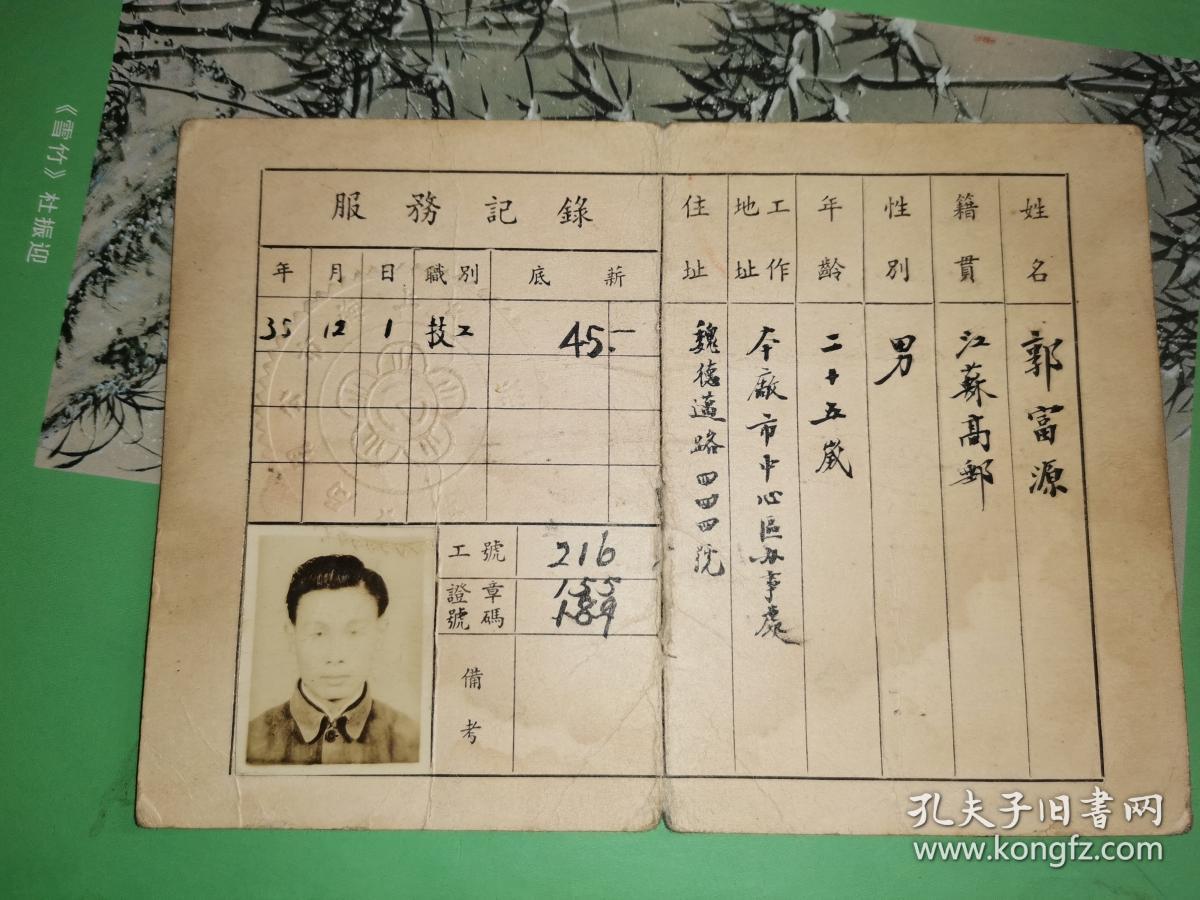 《雪竹》 杜振迎
姓名 郭富源
籍貫 江蘇高郵
性別 男
年齡 二十五歲
工作地址 本廠市中心區办事處
住址 魏德邁路四四四號
服務記錄
年 月 日 職別 底薪
35 12 1 技工 45.—
工號 216
證章號碼 155
189
備考
孔夫子旧书网
www.kongfz.com